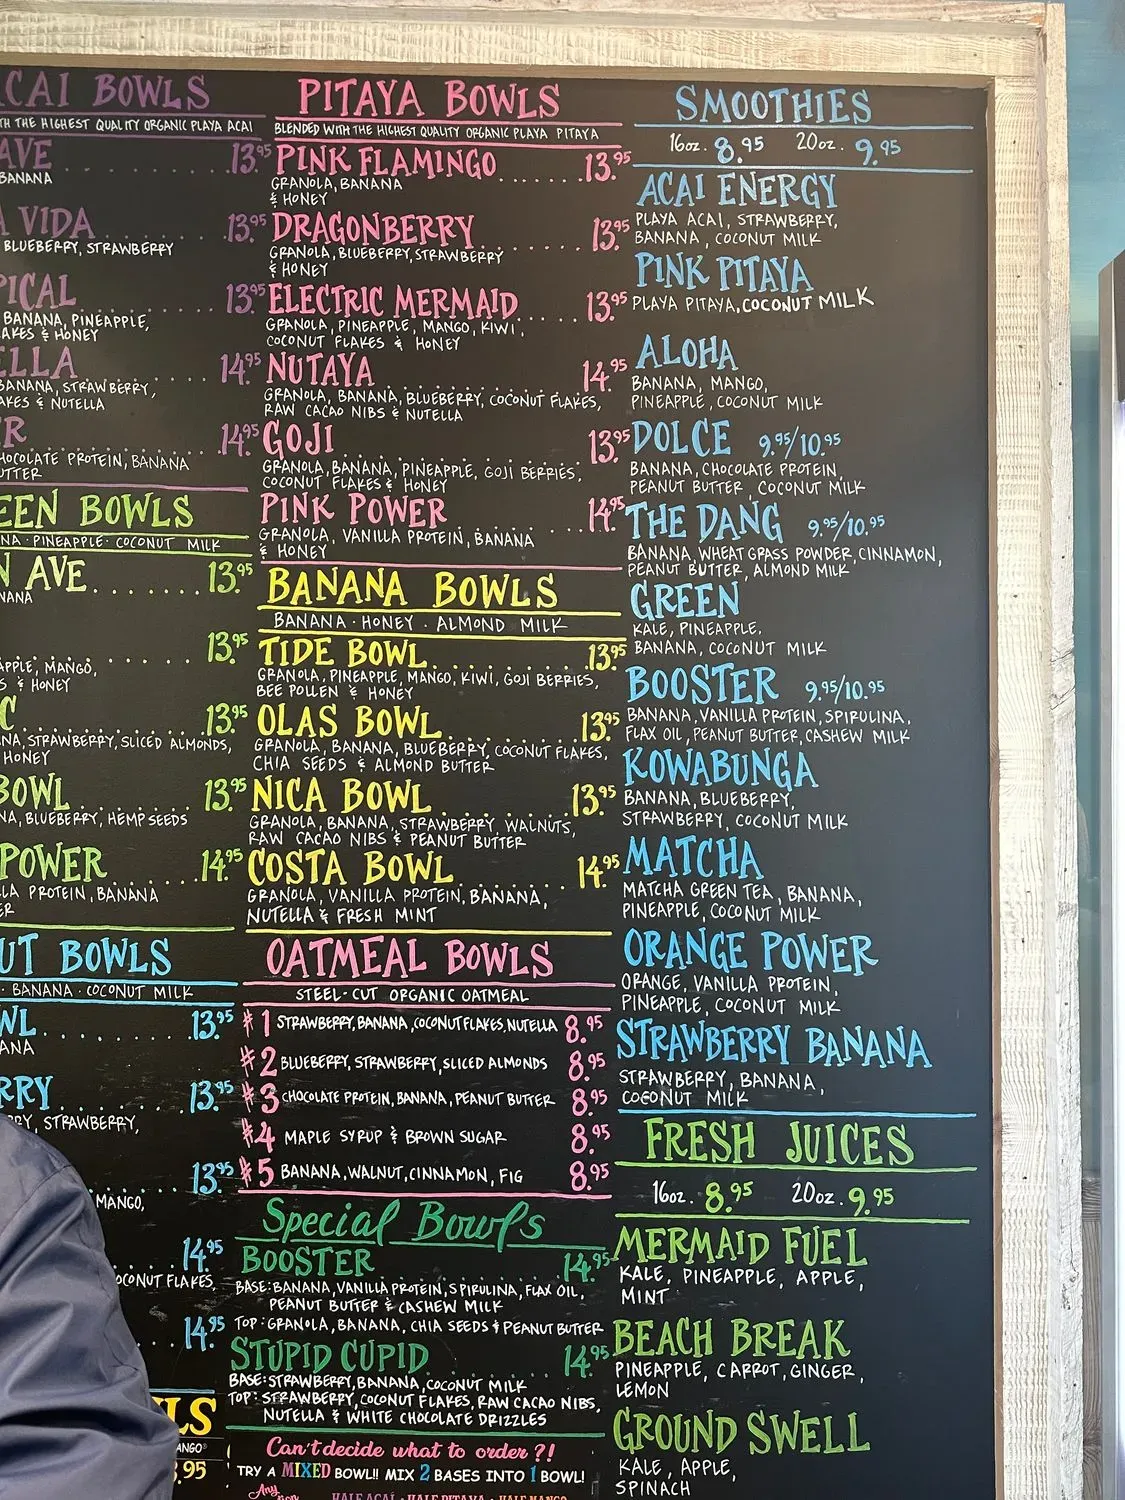 CAI BOWLS
TH THE HIGHEST QUALITY ORGANIC PLAYA ACAI
AVE 13.95
BANANA
A VIDA 13.95
BLUEBERRY, STRAWBERRY
PICAL 13.95
BANANA, PINEAPPLE,
AKES & HONEY
ELLA 14.95
BANANA, STRAWBERRY,
AKES & NUTELLA
R 14.95
HOCOLATE PROTEIN, BANANA
UTTER
EEN BOWLS
NA · PINEAPPLE · COCONUT MILK
N AVE 13.95
NANA
13.95
APPLE, MANGO,
S & HONEY
C 13.95
NA, STRAWBERRY, SLICED ALMONDS,
HONEY
BOWL 13.95
NA, BLUEBERRY, HEMP SEEDS
POWER 14.95
LA PROTEIN, BANANA
ER
UT BOWLS
· BANANA · COCONUT MILK
WL 13.95
ANA
RRY 13.95
RY, STRAWBERRY,
13.95
MANGO,
14.95
OCONUT FLAKES,
14.95
LS
ANGO
.95
PITAYA BOWLS
BLENDED WITH THE HIGHEST QUALITY ORGANIC PLAYA PITAYA
PINK FLAMINGO 13.95
GRANOLA, BANANA
& HONEY
DRAGONBERRY 13.95
GRANOLA, BLUEBERRY, STRAWBERRY
& HONEY
ELECTRIC MERMAID 13.95
GRANOLA, PINEAPPLE, MANGO, KIWI,
COCONUT FLAKES & HONEY
NUTAYA 14.95
GRANOLA, BANANA, BLUEBERRY, COCONUT FLAKES,
RAW CACAO NIBS & NUTELLA
GOJI 13.95
GRANOLA, BANANA, PINEAPPLE, GOJI BERRIES,
COCONUT FLAKES & HONEY
PINK POWER 14.95
GRANOLA, VANILLA PROTEIN, BANANA
& HONEY
BANANA BOWLS
BANANA · HONEY · ALMOND MILK
TIDE BOWL 13.95
GRANOLA, PINEAPPLE, MANGO, KIWI, GOJI BERRIES,
BEE POLLEN & HONEY
OLAS BOWL 13.95
GRANOLA, BANANA, BLUEBERRY, COCONUT FLAKES,
CHIA SEEDS & ALMOND BUTTER
NICA BOWL 13.95
GRANOLA, BANANA, STRAWBERRY, WALNUTS,
RAW CACAO NIBS & PEANUT BUTTER
COSTA BOWL 14.95
GRANOLA, VANILLA PROTEIN, BANANA,
NUTELLA & FRESH MINT
OATMEAL BOWLS
STEEL-CUT ORGANIC OATMEAL
#1 STRAWBERRY, BANANA, COCONUT FLAKES, NUTELLA 8.95
#2 BLUEBERRY, STRAWBERRY, SLICED ALMONDS 8.95
#3 CHOCOLATE PROTEIN, BANANA, PEANUT BUTTER 8.95
#4 MAPLE SYRUP & BROWN SUGAR 8.95
#5 BANANA, WALNUT, CINNAMON, FIG 8.95
Special Bowls
BOOSTER 14.95
BASE: BANANA, VANILLA PROTEIN, SPIRULINA, FLAX OIL,
PEANUT BUTTER & CASHEW MILK
TOP: GRANOLA, BANANA, CHIA SEEDS & PEANUT BUTTER
STUPID CUPID 14.95
BASE: STRAWBERRY, BANANA, COCONUT MILK
TOP: STRAWBERRY, COCONUT FLAKES, RAW CACAO NIBS,
NUTELLA & WHITE CHOCOLATE DRIZZLES
Can't decide what to order?!
TRY A MIXED BOWL!! MIX 2 BASES INTO 1 BOWL!
Any
HALF ACAI · HALF PITAYA · HALF MANGO
SMOOTHIES
16oz. 8.95 20oz. 9.95
ACAI ENERGY
PLAYA ACAI, STRAWBERRY,
BANANA, COCONUT MILK
PINK PITAYA
PLAYA PITAYA, COCONUT MILK
ALOHA
BANANA, MANGO,
PINEAPPLE, COCONUT MILK
DOLCE 9.95/10.95
BANANA, CHOCOLATE PROTEIN,
PEANUT BUTTER, COCONUT MILK
THE DANG 9.95/10.95
BANANA, WHEAT GRASS POWDER, CINNAMON,
PEANUT BUTTER, ALMOND MILK
GREEN
KALE, PINEAPPLE,
BANANA, COCONUT MILK
BOOSTER 9.95/10.95
BANANA, VANILLA PROTEIN, SPIRULINA,
FLAX OIL, PEANUT BUTTER, CASHEW MILK
KOWABUNGA
BANANA, BLUEBERRY,
STRAWBERRY, COCONUT MILK
MATCHA
MATCHA GREEN TEA, BANANA,
PINEAPPLE, COCONUT MILK
ORANGE POWER
ORANGE, VANILLA PROTEIN,
PINEAPPLE, COCONUT MILK
STRAWBERRY BANANA
STRAWBERRY, BANANA,
COCONUT MILK
FRESH JUICES
16oz. 8.95 20oz. 9.95
MERMAID FUEL
KALE, PINEAPPLE, APPLE,
MINT
BEACH BREAK
PINEAPPLE, CARROT, GINGER,
LEMON
GROUND SWELL
KALE, APPLE,
SPINACH